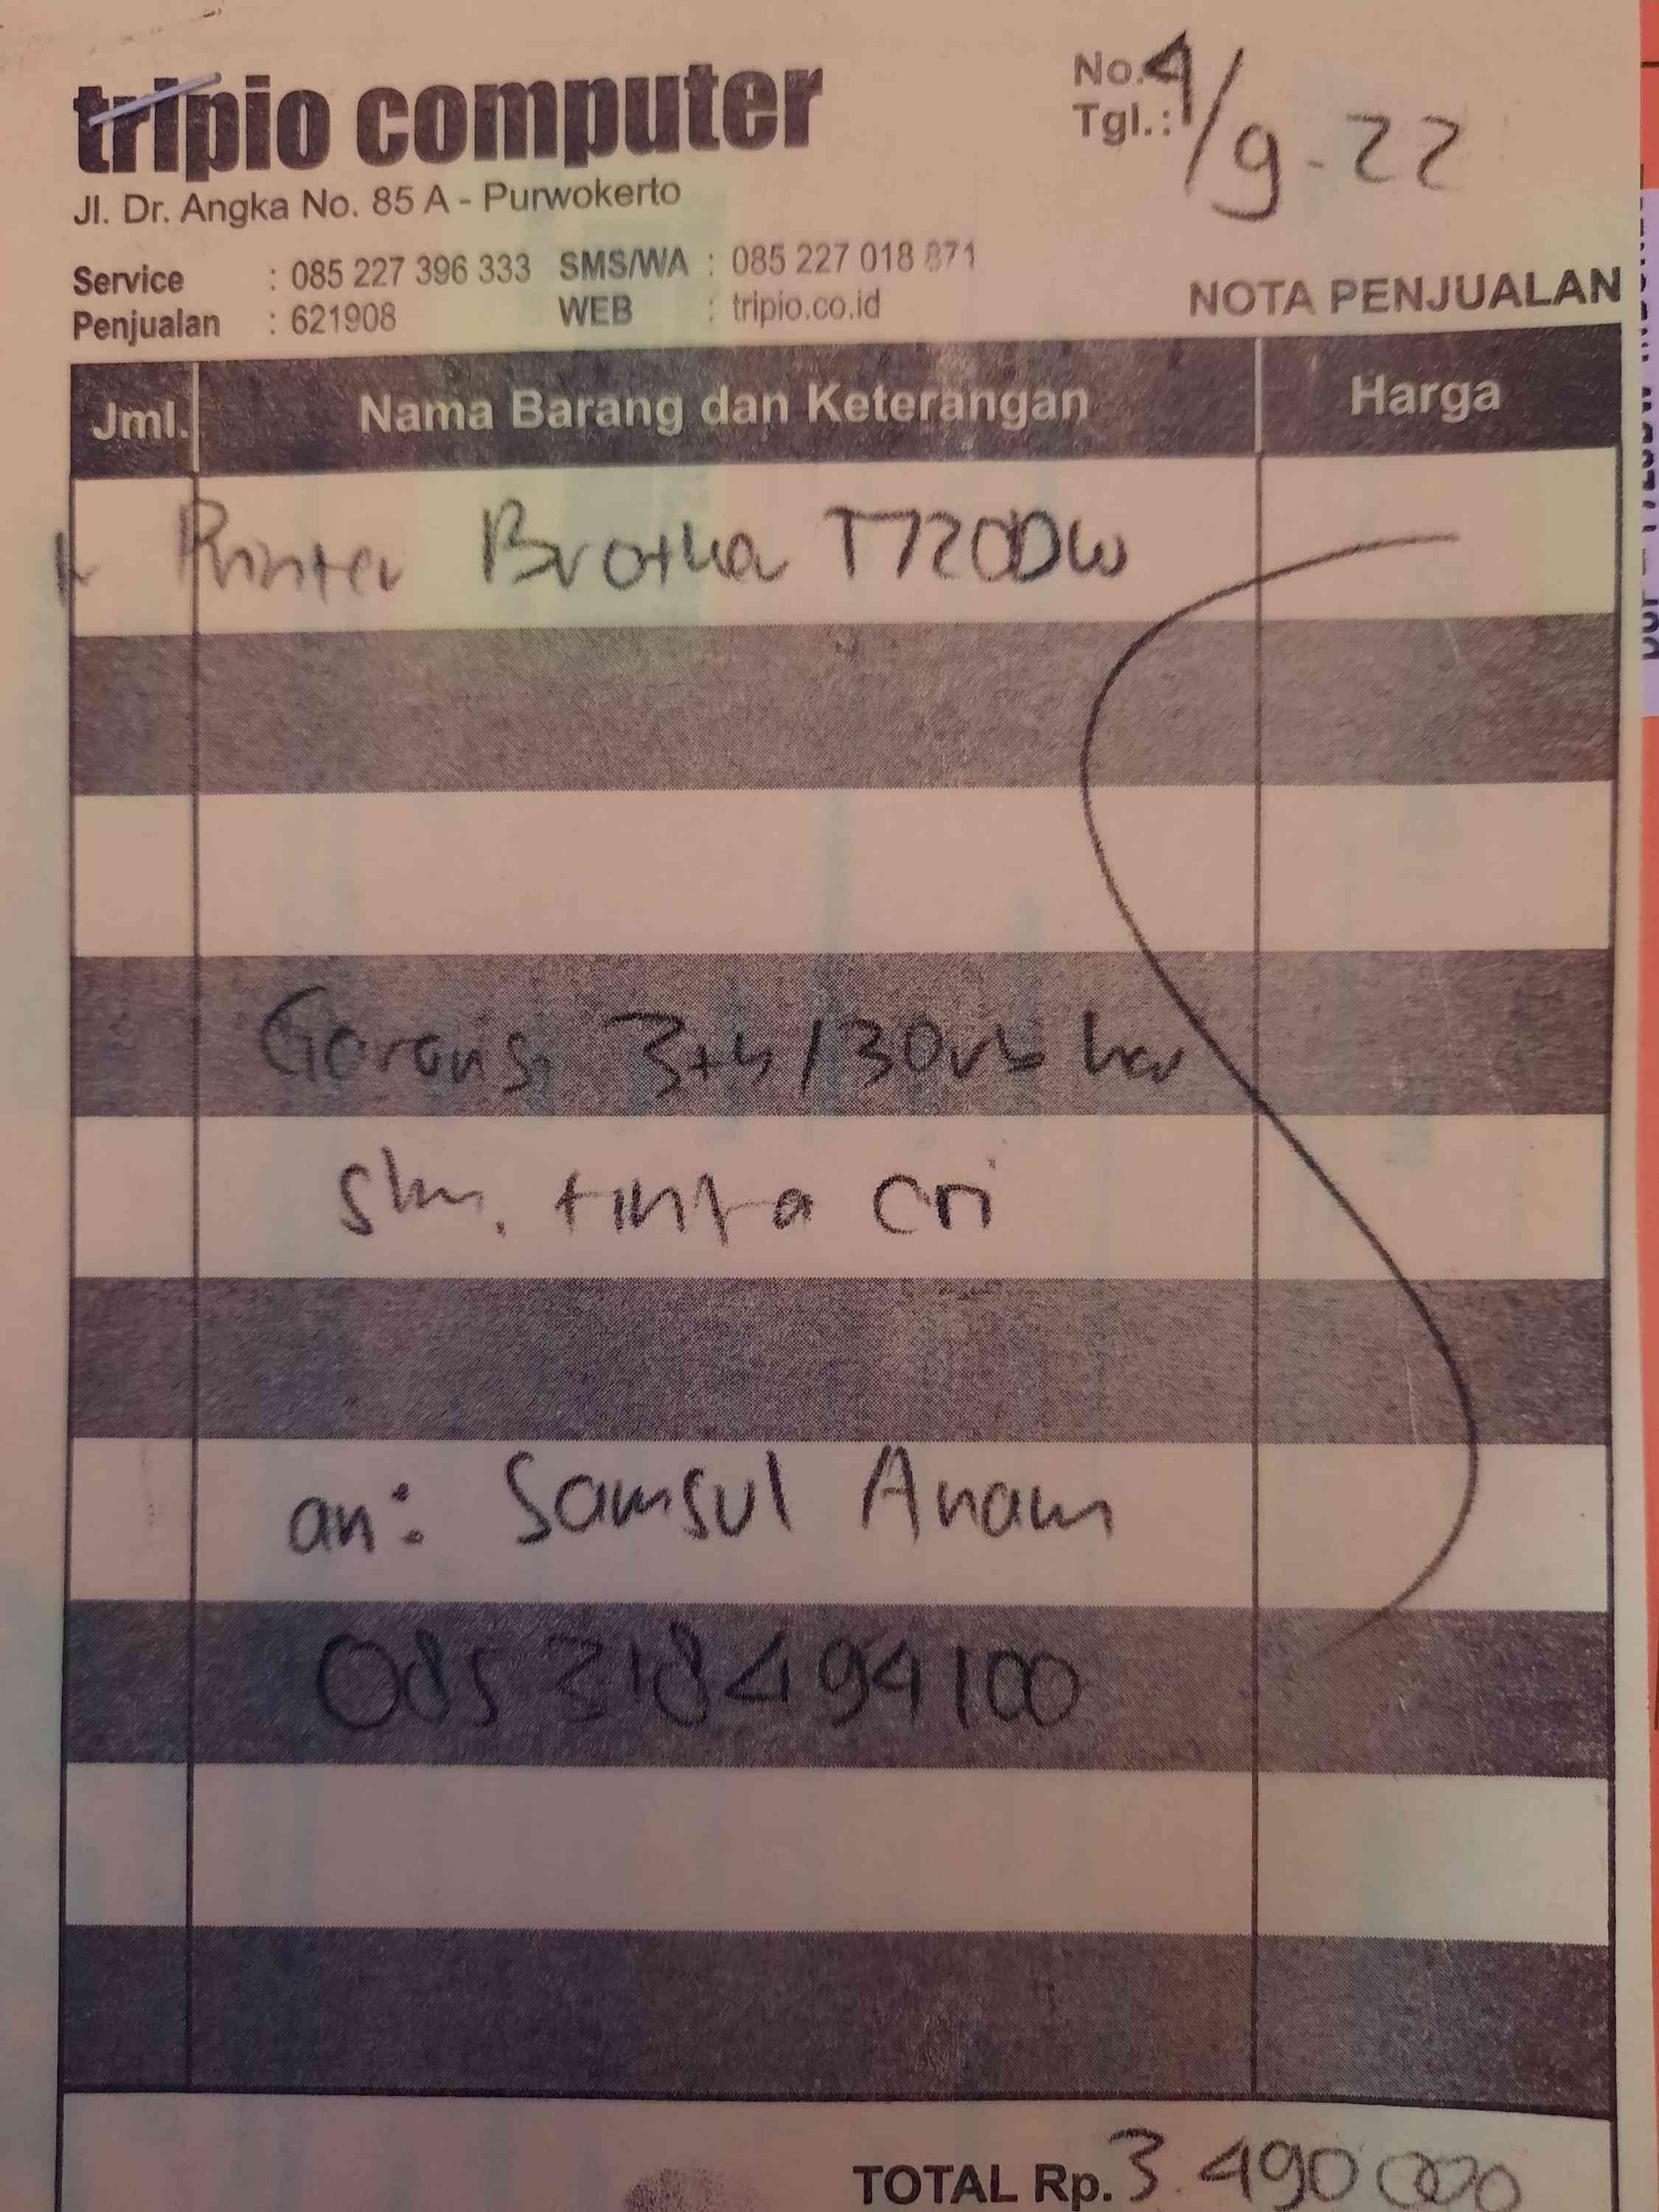 tripio computer
Jl. Dr. Angka No. 85 A - Purwokerto
No. 4/9-22
Tgl.:
Service : 085 227 396 333 SMS/WA : 085 227 018 871
Penjualan : 621908 WEB : tripio.co.id
NOTA PENJUALAN
Jml. Nama Barang dan Keterangan Harga
Printer Brother T720DW
Garansi
tinta ori
an: Samsul Anam
085318494100
TOTAL Rp. 3.490000